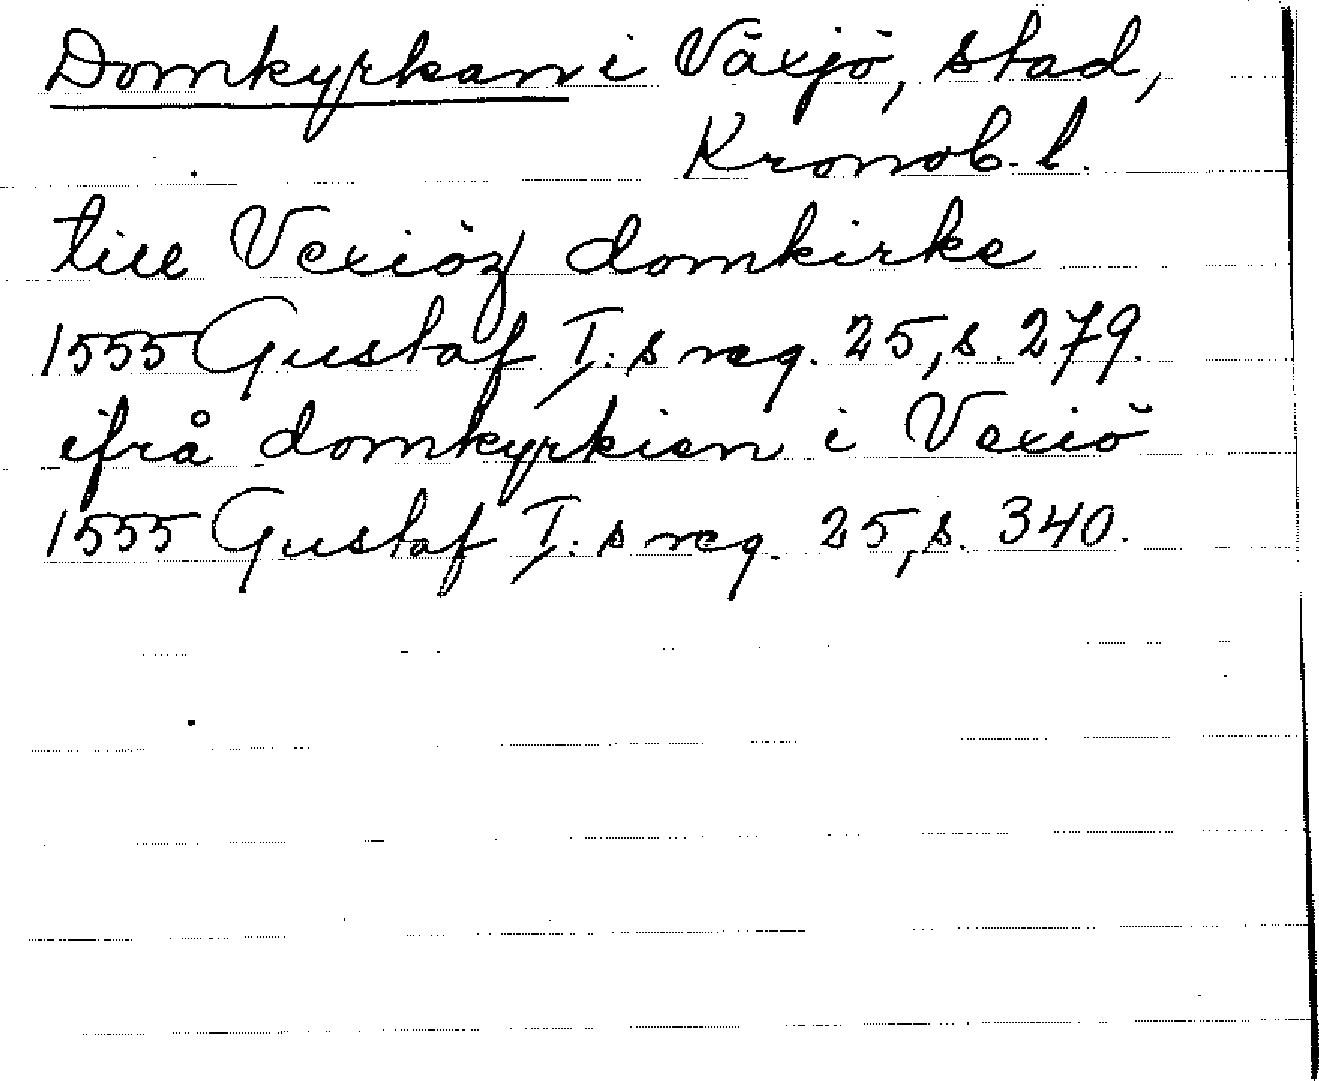 Domkyrkan i Växjö, stad,
Kronob. l.
till Vexiöz domkirke
1555 Gustaf I:s reg. 25, s. 279.
ifrå domkyrkien i Vexiö
1555 Gustaf I:s reg. 25, s. 340.